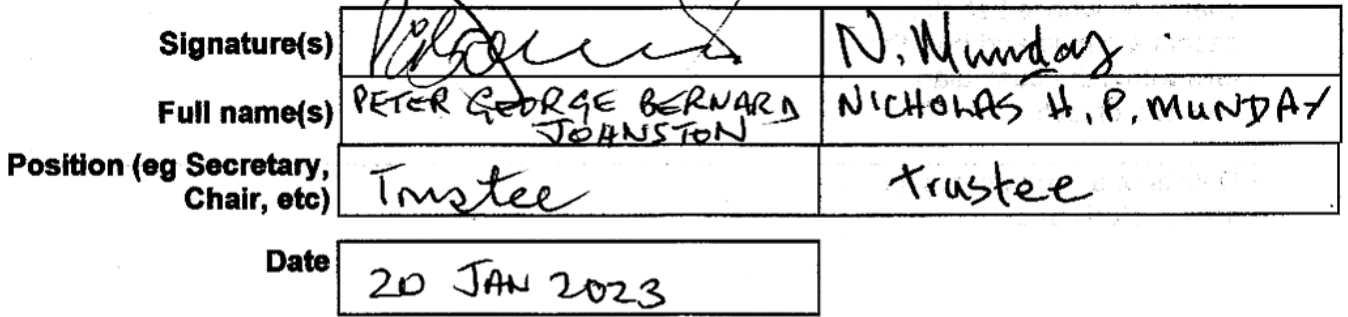 Signature(s) N. Munday
Full name(s) PETER GEORGE BERNARD JOHNSTON NICHOLAS H. P. MUNDAY
Position (eg Secretary, Chair, etc) Trustee trustee
Date 20 JAN 2023